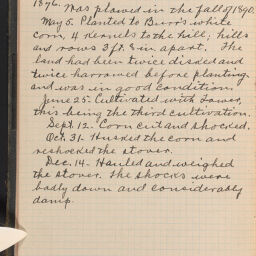 1876. Was plowed in the fall of 1890.
May 5. Planted to Burr's white
corn, 4 kernels to the hill; hills
and rows 3 ft. 8 in apart. The
land had been twice disked and
twice harrowed before planting
and was in good condition.
June 25. Cultivated with Tower,
this being the third cultivation.
Sept. 12. Corn cut and shocked.
Oct. 31. Husked the corn and
reshocked the stover.
Dec. 14. Hauled and weighed
the stover. The shocks were
badly down and considerably
damp.